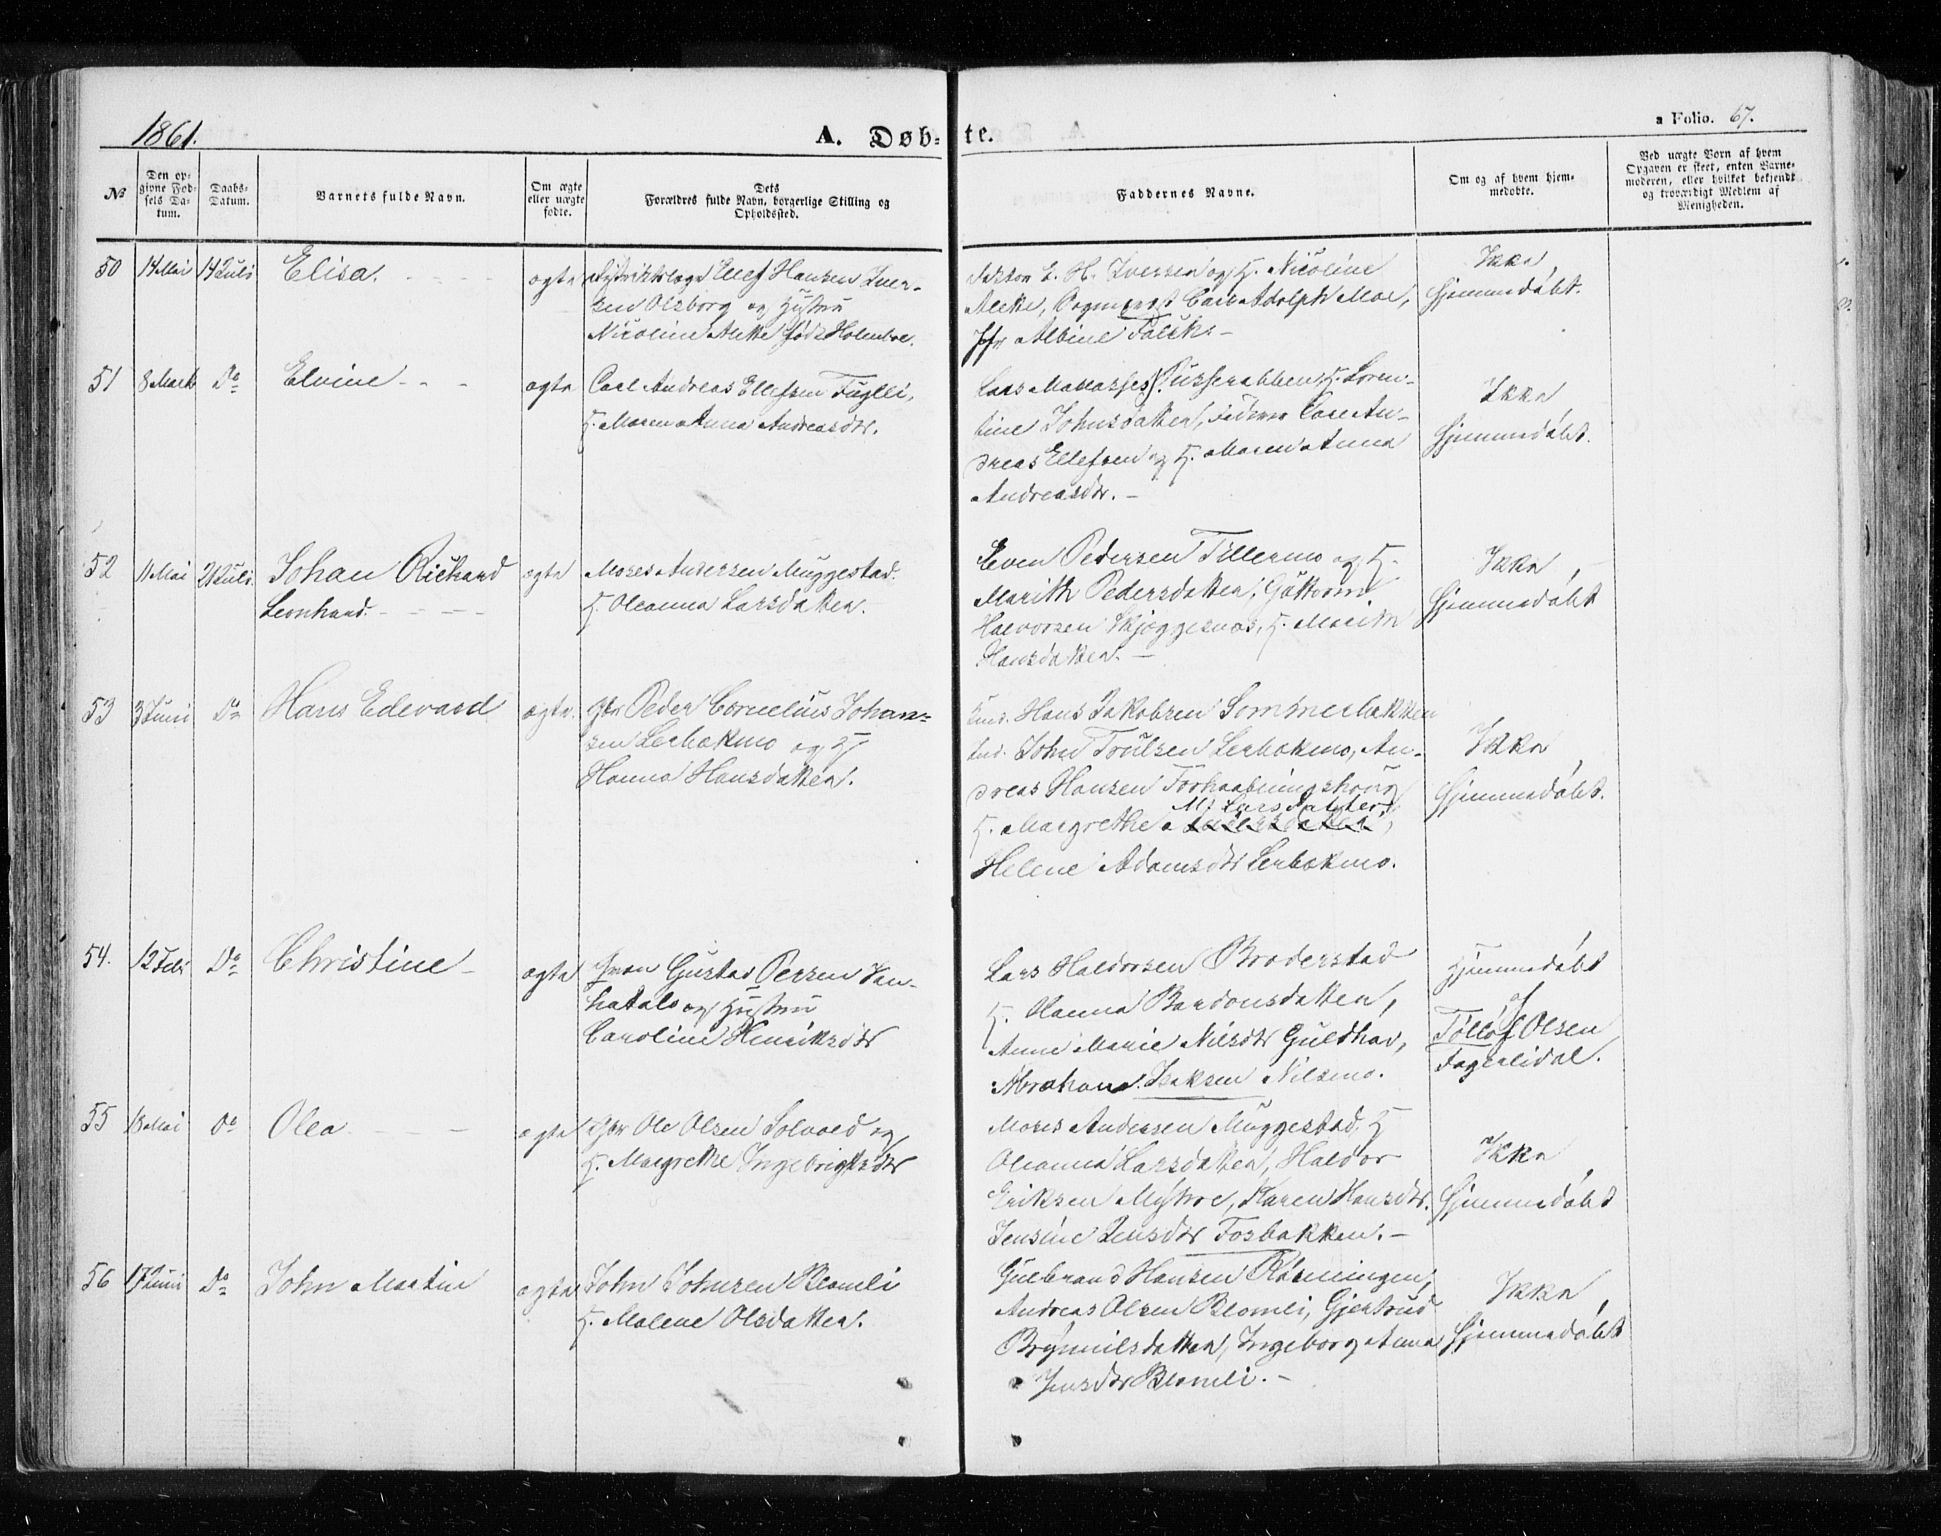 1861.
A. Døb-
te.
a Folio. 67.
No
Den op-
givne Fød-
sels Da-
tum.
Daabs-
Datum.
Barnets fulde Navn.
Om ægte
eller uægte
fødte.
Dets
Forældres fulde Navn, borgerlige Stilling og
Opholdssted.
Faddernes Navne.
Om og af hvem hjem-
medøbte.
Ved uægte Børn af hvem
Opgaven er skeet, enten Barne-
moderen, eller hvilket bekjendt
og troværdigt Medlem af
Menigheden.
50
14 Mai
14 Juli
Elisa.
ægte
Distriktslæge Ellef Hansen Iver-
sen Olsborg og Hustru
Nicoline Aletke født Holmboe.
Doktor E. H. Iversen og H. Nicoline
Aletke, Carl Adolph Moe,
Jfr Albine Falck.-
Ikke
Hjemmedøbt.
51
8 Marts
Do
Elvine
ægte
Carl Andreas Ellefsen Fuglli,
H. Maren Anna Andreasdtr.
Lars H. Loren-
tine Johnsdatter, Faderen Carl An-
dreas Ellefsen og H. Maren Anna
Andreasdtr. -
Ikke
Hjemmedøbt.
52
11 Mai
21 Juli
Johan Rickard
Leonhard.
ægte
Moses Andersen Muggestad.
H. Oleanna Larsdatter.
Even Pedersen Tillermo og H.
Marith Pedersdatter, Guttorm
Halvorsen Skjæggesnæs, H. Marith
Hansdatter. -
Ikke
Hjemmedøbt
53
3 Juni
Do
Hans Edevard
ægte
Gbr Peder Cornelius Johan-
sen Lerbakmo og H
Hanna Hansdatter.
Ind. Hans Jakobsen Sommerbakken
Ind. John Trulsen Lerbakmo, An-
dreas Hansen Forhaabningshoug
Larsdatter
H. Margrethe Andersdatter,
Helene Adamsdtr Lerbakmo.
Ikke
Hjemmedøbt.
54.
12 Feb
Do
Christine
ægte
Gustav Persen
og Hustru
Caroline Henriksdtr
Lars Haldorsen Broderstad
H. Hanna Bardonsdatter,
Anne Marie Nilsdtr Guldhav,
Abraham Isaksen Nilsmo.
Hjemmedøbt
af
Tollof Olsen
Fagerlidal.
55
13 Mai
Do
Olea
ægte
Gbr Ole Olsen Solvold og
H. Margrethe Ingebrigtsdtr
Moses Andersen Muggestad, H
Oleanna Larsdatter, Haldor
Eriksen Moe, Karen Hansdtr.
Jensine Jensdtr Fosbakken. -
Ikke
Hjemmedøbt
56
17 Juni
Do
John Martin
ægte
John Johnsen Blomli
H. Malene Olsdatter.
Gulbrand Hansen Rønningen,
Andreas Olsen Blomli, Gjertrud
Brynnilsdatter, Ingeborg Anna
Jensdtr Blomli. -
Ikke
Hjemmedøbt